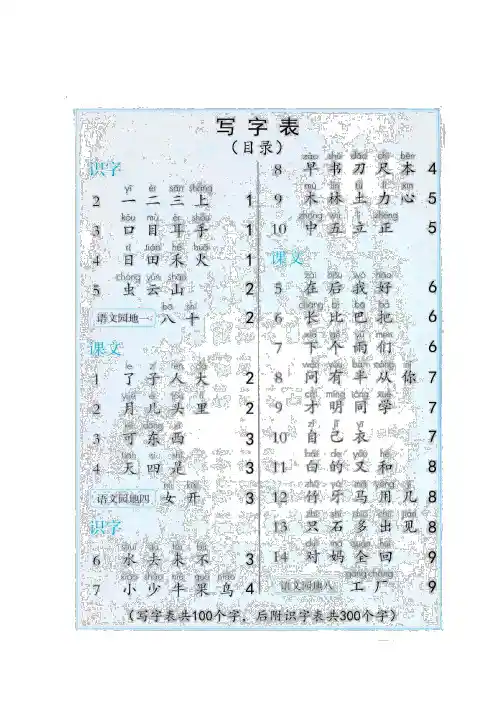 写字表
(目录)
识字
yī èr sān shàng
2 一 二 三 上 1
kǒu mù ěr shǒu
3 口 目 耳 手 1
rì tián hé huǒ
4 日 田 禾 火 1
chóng yún shān
5 虫 云 山 2
bā shí
语文园地一 八 十 2
课文
le zǐ rén dà
1 了 子 人 大 2
2 月 儿 头 里 2
3 可 东 西 3
tiān sì shì
4 天 四 是 3
语文园地四 女 开 3
识字
6 水 去 来 不 3
xiǎo shǎo niú guǒ niǎo
7 小 少 牛 果 鸟 4
zǎo shū dāo chǐ běn
8 早 书 刀 尺 本 4
mù lín tǔ lì xīn
9 木 林 土 力 心 5
zhōng wǔ lì zhèng
10 中 五 立 正 5
课文
zài hòu wǒ hǎo
5 在 后 我 好 6
cháng bǐ bā bǎ
6 长 比 巴 把 6
xià gè yǔ men
7 下 个 雨 们 6
wèn yǒu bàn cóng nǐ
8 问 有 半 从 你 7
cái míng tóng xué
9 才 明 同 学 7
zì jǐ yī
10 自 己 衣 7
bái de yòu hé
11 白 的 又 和 8
zhú yá mǎ yòng jǐ
12 竹 牙 马 用 几 8
zhǐ shí duō chū jiàn
13 只 石 多 出 见 8
duì mā quán huí
14 对 妈 全 回 9
gōng chǎng
语文园地八 工 厂 9
(写字表共100个字，后附识字表共300个字)